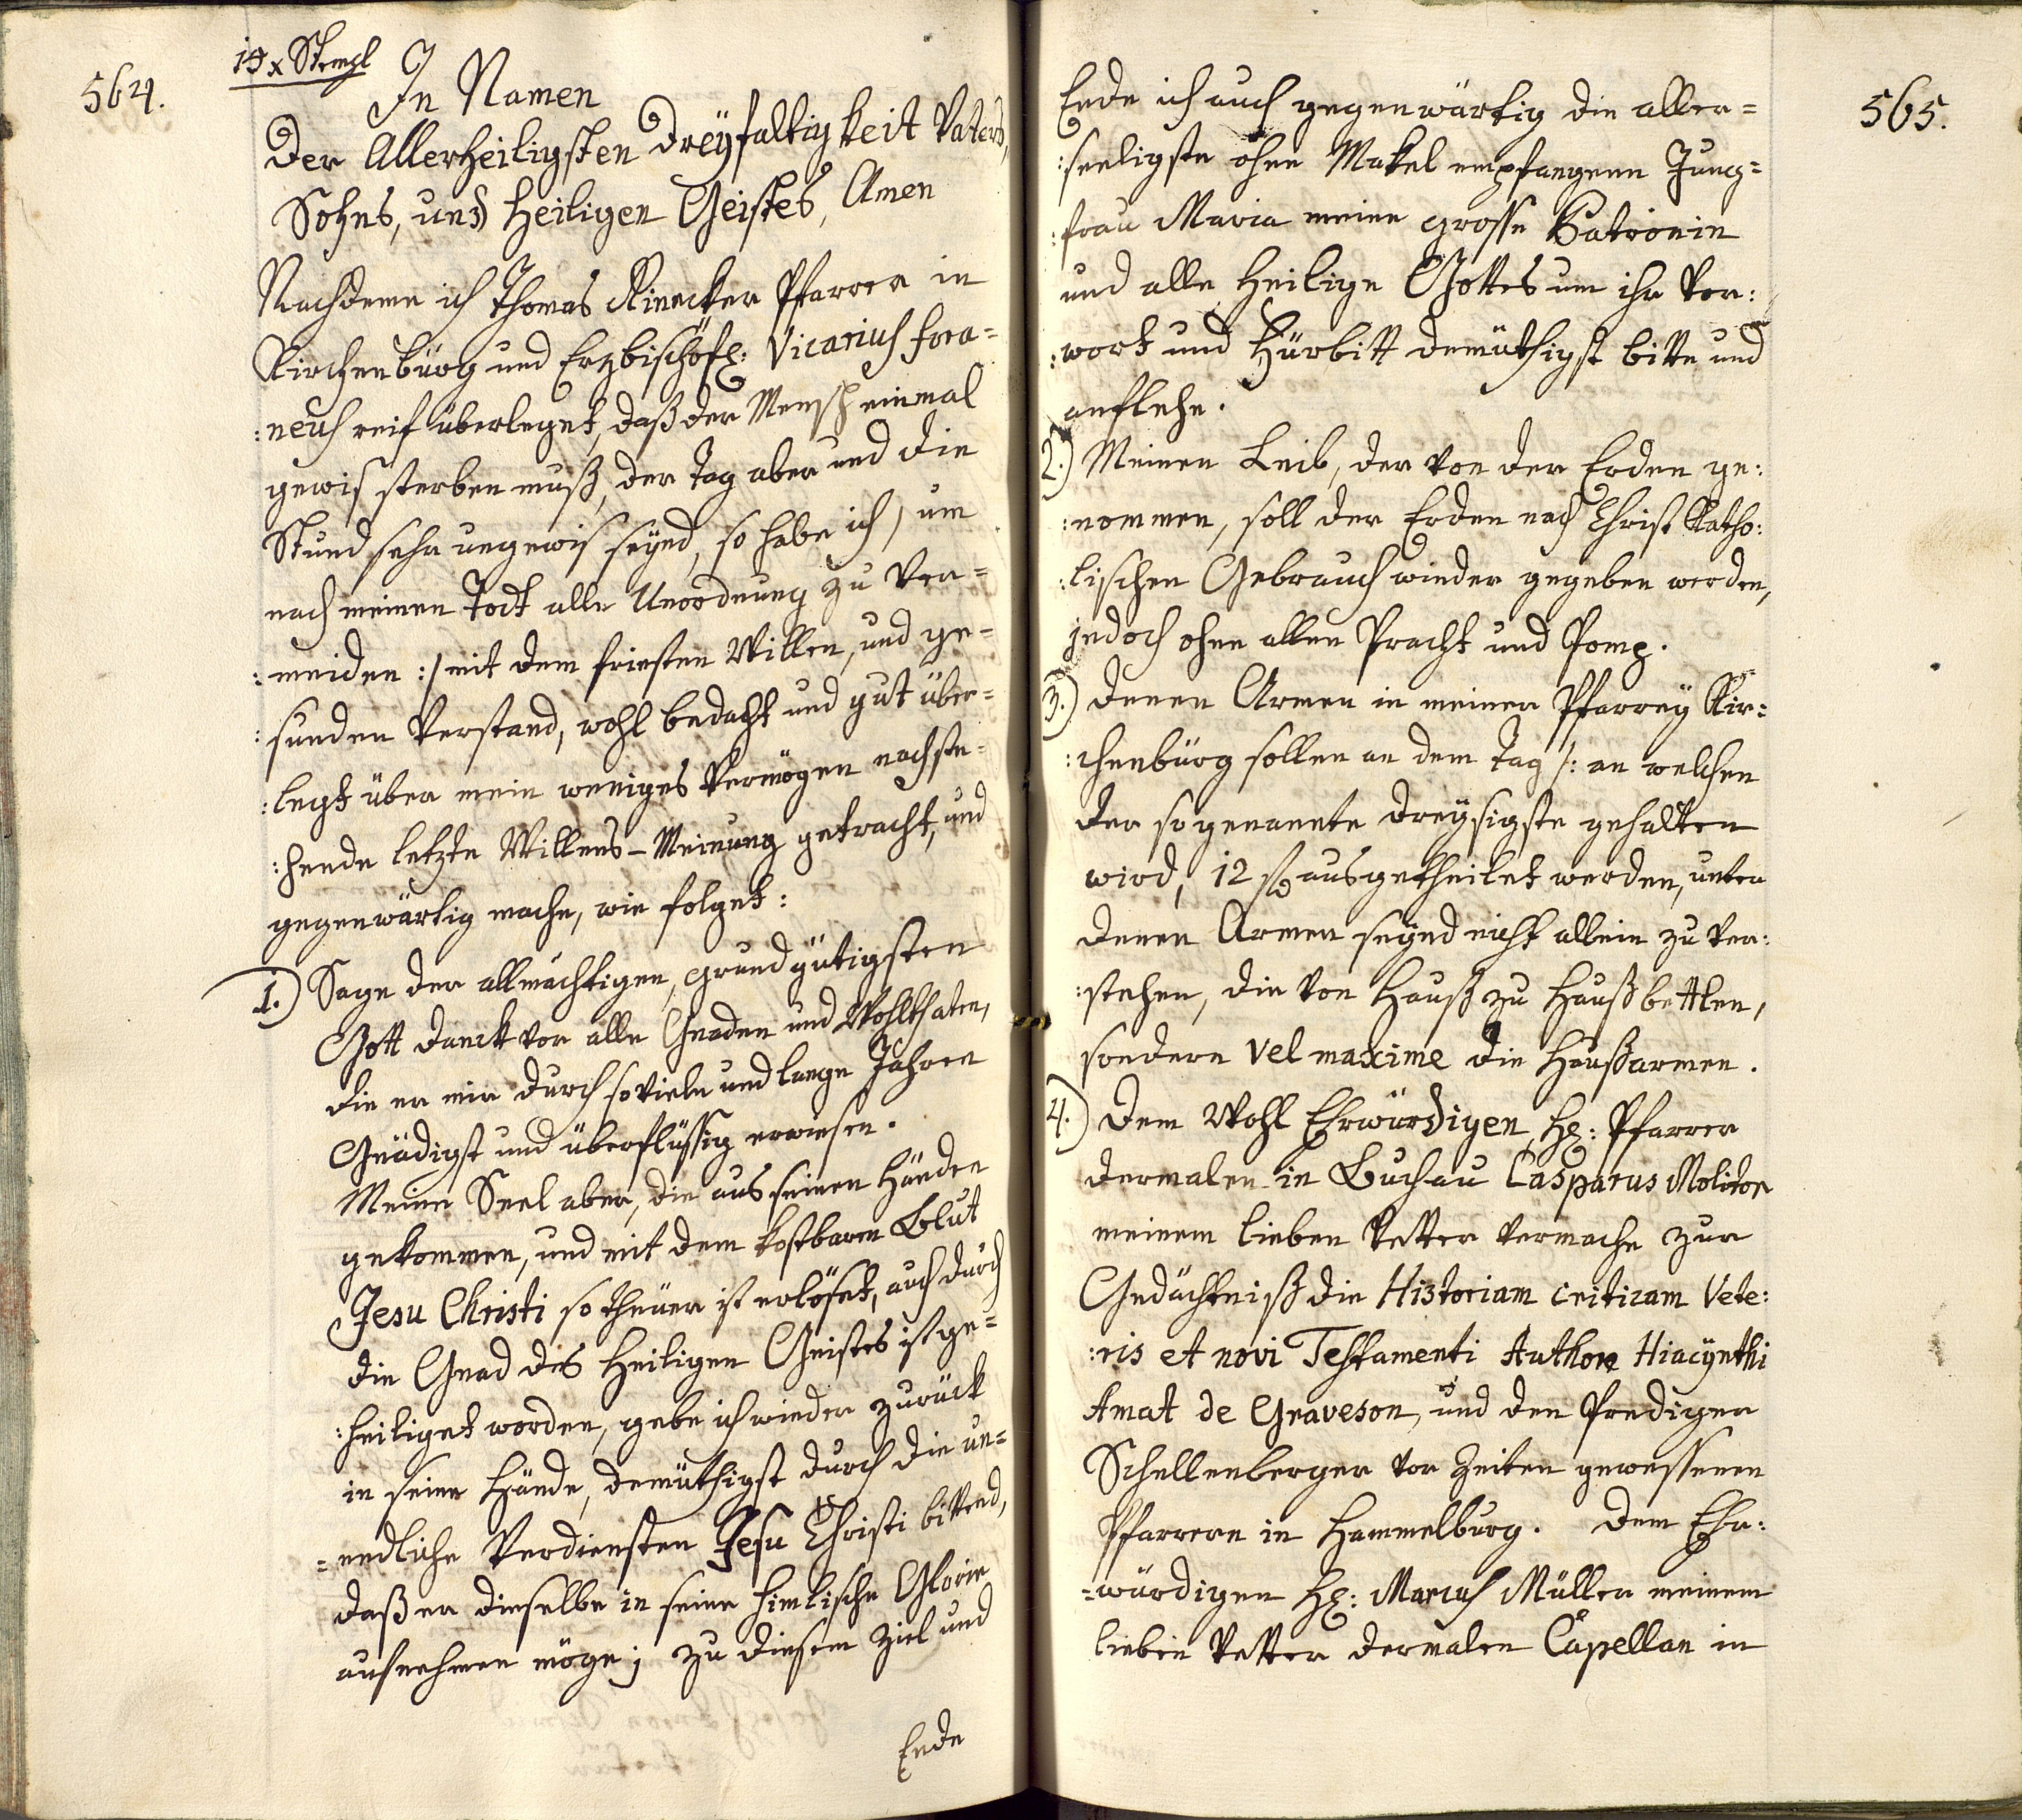 564.
15 x Stempl
In Namen
Der Allerheiligsten Dreÿfaltigkeit Vaters,
Sohns, und Heiligen Geistes, Amen
Nachdeme ich Thomas Rinecker Pfarrer in
Kirchenbürg und Erzbischöfl: Vicarius fora=
:neus reif überleget, daß der Mensch einmal
gewis sterben muß, der Tag aber und die
Stund sehr ungewis seÿnd, so habe ich / um
nach meinen Todt alle Unordnung zu ver=
:meiden :/ mit dem freisten Willen, und ge=
:sunden Verstand, wohl bedacht und gut über=
:legt über mein weniges Vermögen nachste=
:hende letzte Willens-Meinung getracht, und
gegenwärtig mache, wie folget:
1.) Sage der allmächtigen, grundgütigsten
Gott Danck vor alle Gnaden und Wohlthaten,
die er mir durch so viele und lange Jahren
Gnädigst und überflüssig erwiesen.
Meine Seel aber, die aus seinen Händen
gekommen, und mit dem kostbaren Blut
Jesu Christi so theuer ist erlöset, auch durch
die Gnad des Heiligen Geistes ist ge=
:heiliget worden, gebe ich wieder zurück
in seine Hände, demüthigst durch die un=
=endliche Verdiensten Jesu Christi bittend,
daß er dieselbe in seine himlische Glorie
aufnehmen möge; zu diesem Ziel und
Ende
565.
Ende ich auch gegenwärtig die aller=
:seeligste ohne Makel empfangene Jung=
:frau Maria meine grosse Patronin
und alle Heilige Gottes um ihr Vor:
:wort und Fürbitt demüthigst bitte und
anflehe.
2.) Meinen Leib, der von der Erden ge:
:nommen, soll der Erden nach Christ Katho:
:lischen Gebrauch wieder gegeben werden,
jedoch ohne allen Pracht und Pomp.
3.) Denen Armen in meiner Pfarreÿ Kir=
:chenbürg sollen an dem Tag /: an welchen
der so genannte Dreÿsigste gehalten
wird, 12 fl ausgetheilet werden, unter
denen Armen seÿnd nicht allein zu ver:
:stehen, die von Hauß zu Hauß bettlen,
sondern vel maxime die Haußarmen.
4.) Dem Wohl Ehrwürdigen H: Pfarrer
dermalen in Buchau Casparus Molitor
meinem lieben Vetter vermache zur
Gedächtniß die Historiam criticam Vete:
:ris et novi Testamenti Authore Hiacÿnthi
Amat de Graveson, und den Prediger
Schellenberger vor Zeiten gewessenen
Pfarrern in Hammelburg. Dem Ehr:
=würdigen H: Marius Müller meinem
lieben Vetter dermalen Capellan in